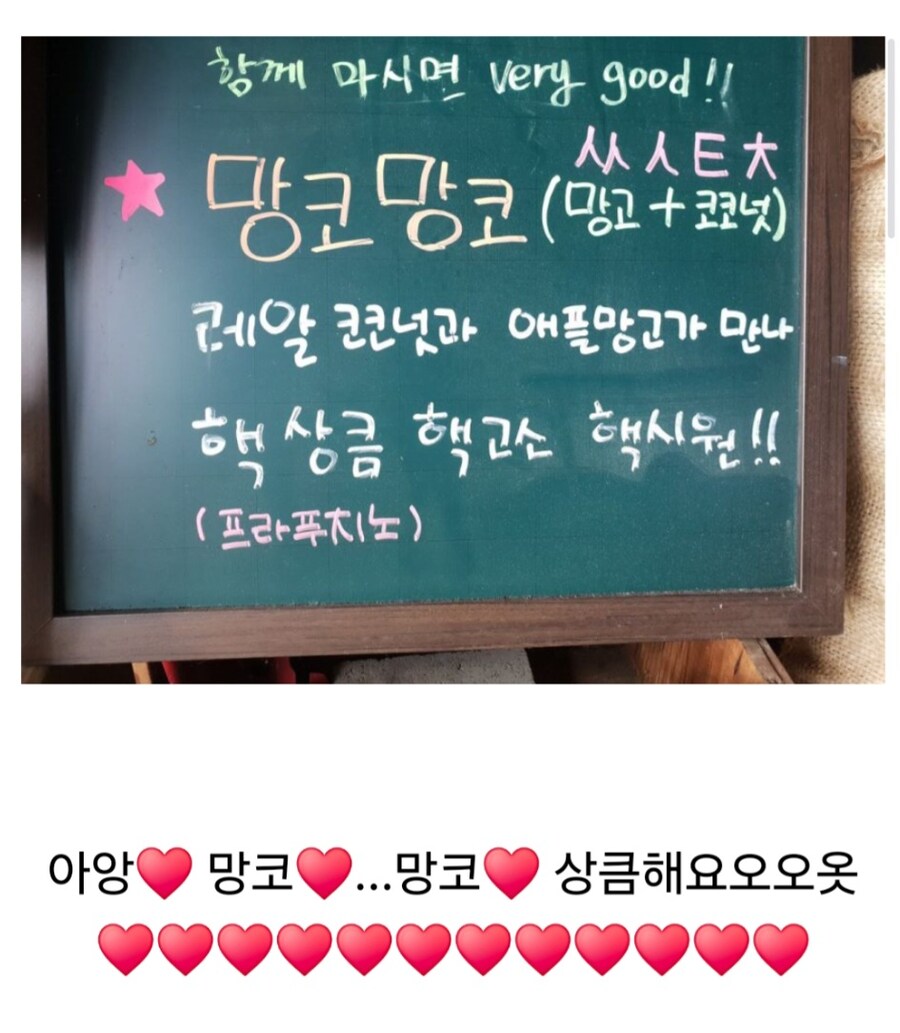 함께 마시면 very good!!
ㅆㅅㅌㅊ
★ 망코망코 (망고+코코넛)
레알 코코넛과 애플망고가 만나
핵상큼 핵고소 핵시원!!
(프라푸치노)
아앙♥ 망코♥...망코♥ 상큼해요오오옷
♥♥♥♥♥♥♥♥♥♥♥♥